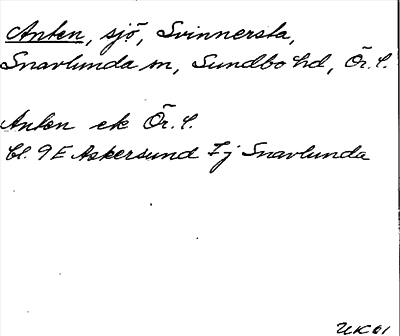 Anten, sjö, Svinnersta,
Snavlunda sn, Sundbo hd, Ör. l.
Anten ek Ör. l.
bl. 9E Askersund Ij Snavlunda
UK61